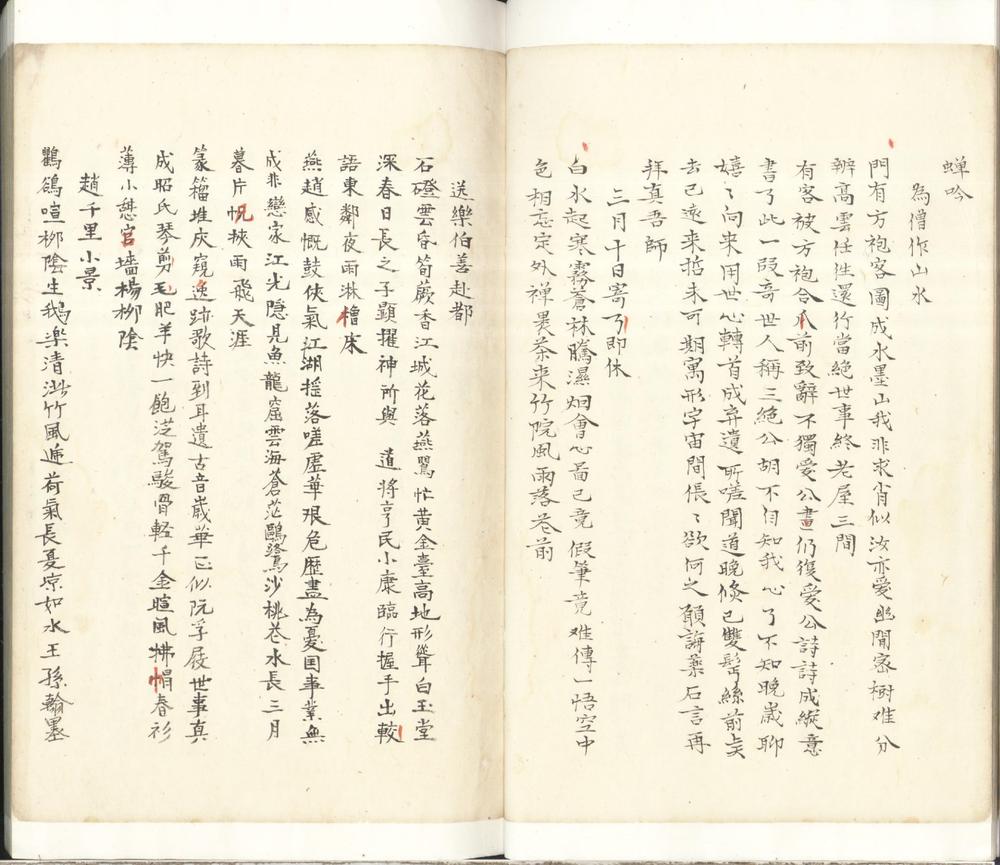 蟬吟
為僧作山水
門有方袍客圖成水墨山我非求肖似汝亦愛幽閒密樹难分
辨高雲任往還行當絕世事終老屋三間
有客被方袍合爪前致辭不獨愛公畫仍復愛公詩詩成縱意
書了此一段奇世人稱三絕公胡不自知我心了不知晚歲聊
嬉〻向来用世心轉首成弃遺所嗟聞道晚倏已雙髩絲前矣
去已遠来哲未可期寓形宇宙間倀〻欲何之願誨藥石言再
拜真吾師
三月十日寄了即休
白水起寒霧蒼林騰濕烟會心啚已竟假筆竟难傳一悟空中
色相忘定外禅畏茶来竹院風雨落巷前
送樂伯善赴都
石磴雲昏筍蕨香江城花落燕鶯忙黄金臺高地形聳白玉堂
深春日長之子顯擢神所與 道将亨民小康臨行握手出較
語東鄰夜雨淋檜床
燕趙感慨鼓俠氣江湖揺落嗟虛華艰危歴盡為憂囯事業無
成非戀家江光隱見魚龍窟雲海蒼茫鷗鷺沙桃巷水長三月
暮片帆挾雨飛天涯
篆籀堆灰窺逸跡歌詩到耳遺古音嵗華正似阮孚屐世事真
成昭氏琴剪毛肥羊快一飽茳駕駿骨輕千金暄風拂帽春衫
薄小憇官墻楊栁陰
趙千里小景
鸛鵒喧栁陰生鵝楽清泚竹風逓荷氣長夏凉如水王孫翰墨